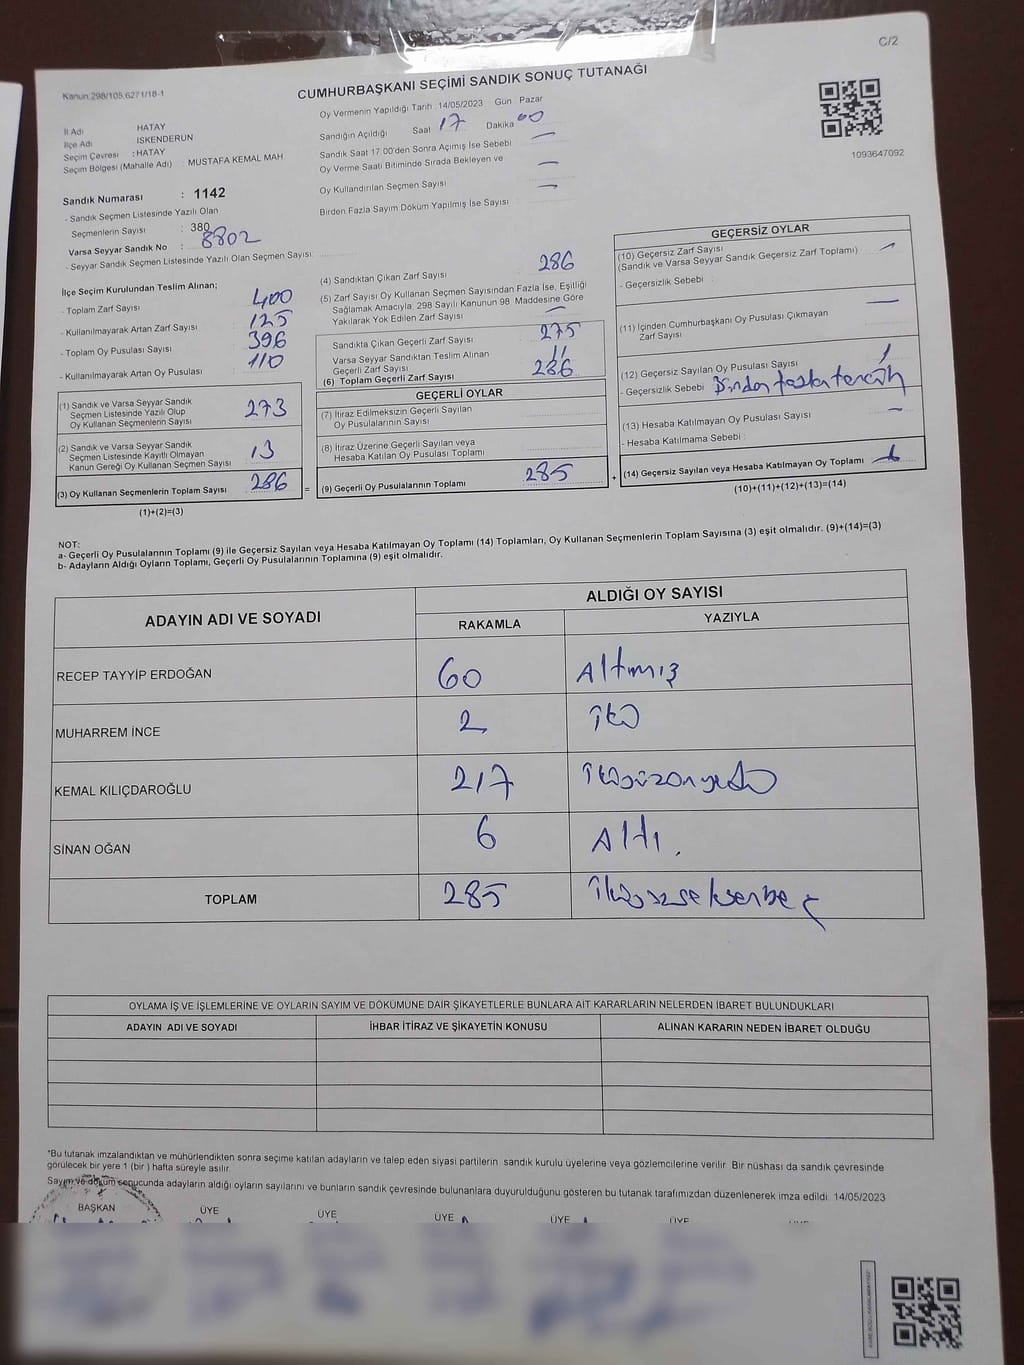 C/2
Kanun:298/105,6271/18-1
CUMHURBAŞKANI SEÇİMİ SANDIK SONUÇ TUTANAĞI
İl Adı HATAY
İlçe Adı İSKENDERUN
Seçim Çevresi : HATAY
Seçim Bölgesi (Mahalle Adı) : MUSTAFA KEMAL MAH
Sandık Numarası : 1142
- Sandık Seçmen Listesinde Yazılı Olan
Seçmenlerin Sayısı : 380
Varsa Seyyar Sandık No : 8802
- Seyyar Sandık Seçmen Listesinde Yazılı Olan Seçmen Sayısı:
Oy Vermenin Yapıldığı Tarih 14/05/2023 Gün Pazar
Sandığın Açıldığı Saat 17 Dakika 00
Sandık Saat 17.00'den Sonra Açımış İse Sebebi —
Oy Verme Saati Bitiminde Sırada Bekleyen ve
Oy Kullandırılan Seçmen Sayısı —
Birden Fazla Sayım Döküm Yapılmış İse Sayısı —
1093647092
İlçe Seçim Kurulundan Teslim Alınan;
- Toplam Zarf Sayısı 400
- Kullanılmayarak Artan Zarf Sayısı 125
- Toplam Oy Pusulası Sayısı 396
- Kullanılmayarak Artan Oy Pusulası 110
(1) Sandık ve Varsa Seyyar Sandık
Seçmen Listesinde Yazılı Olup
Oy Kullanan Seçmenlerin Sayısı 273
(2) Sandık ve Varsa Seyyar Sandık
Seçmen Listesinde Kayıtlı Olmayan
Kanun Gereği Oy Kullanan Seçmen Sayısı 13
(3) Oy Kullanan Seçmenlerin Toplam Sayısı 286 =
(1)+(2)=(3)
(4) Sandıktan Çıkan Zarf Sayısı 286
(5) Zarf Sayısı Oy Kullanan Seçmen Sayısından Fazla İse, Eşitliği
Sağlamak Amacıyla 298 Sayılı Kanunun 98 Maddesine Göre
Yakılarak Yok Edilen Zarf Sayısı —
Sandıkta Çıkan Geçerli Zarf Sayısı 275
Varsa Seyyar Sandıktan Teslim Alınan
Geçerli Zarf Sayısı 11
(6) Toplam Geçerli Zarf Sayısı 286
GEÇERLİ OYLAR
(7) İtiraz Edilmeksizin Geçerli Sayılan
Oy Pusulasının Sayısı
(8) İtiraz Üzerine Geçerli Sayılan veya
Hesaba Katılan Oy Pusulası Toplamı
(9) Geçerli Oy Pusulalarının Toplamı 285 +
GEÇERSİZ OYLAR
(10) Geçersiz Zarf Sayısı
(Sandık ve Varsa Seyyar Sandık Geçersiz Zarf Toplamı) —
- Geçersizlik Sebebi :
—
(11) İçinden Cumhurbaşkanı Oy Pusulası Çıkmayan
Zarf Sayısı
(12) Geçersiz Sayılan Oy Pusulası Sayısı 1
- Geçersizlik Sebebi Birden fazla tercih
(13) Hesaba Katılmayan Oy Pusulası Sayısı —
- Hesaba Katılmama Sebebi :
(14) Geçersiz Sayılan veya Hesaba Katılmayan Oy Toplamı
(10)+(11)+(12)+(13)=(14)
NOT:
a- Geçerli Oy Pusulalarının Toplamı (9) ile Geçersiz Sayılan veya Hesaba Katılmayan Oy Toplamı (14) Toplamları, Oy Kullanan Seçmenlerin Toplam Sayısına (3) eşit olmalıdır. (9)+(14)=(3)
b- Adayların Aldığı Oyların Toplamı, Geçerli Oy Pusulalarının Toplamına (9) eşit olmalıdır.
ADAYIN ADI VE SOYADI ALDIĞI OY SAYISI
RAKAMLA YAZIYLA
RECEP TAYYİP ERDOĞAN 60 Altmış
MUHARREM İNCE 2 iki
KEMAL KILIÇDAROĞLU 217 ikiyüzonyedi
SİNAN OĞAN 6 Altı.
TOPLAM 285 ikiyüzseksenbeş
OYLAMA İŞ VE İŞLEMLERİNE VE OYLARIN SAYIM VE DÖKÜMÜNE DAİR ŞİKAYETLERLE BUNLARA AİT KARARLARIN NELERDEN İBARET BULUNDUKLARI
ADAYIN ADI VE SOYADI İHBAR İTİRAZ VE ŞİKAYETİN KONUSU ALINAN KARARIN NEDEN İBARET OLDUĞU
*Bu tutanak imzalandıktan ve mühürlendikten sonra seçime katılan adayların ve talep eden siyasi partilerin sandık kurulu üyelerine veya gözlemcilerine verilir. Bir nüshası da sandık çevresinde
görülecek bir yere 1 (bir ) hafta süreyle asılır.
Sayım ve döküm sonucunda adayların aldığı oyların sayılarını ve bunların sandık çevresinde bulunanlara duyurulduğunu gösteren bu tutanak tarafımızdan düzenlenerek imza edildi. 14/05/2023
BAŞKAN ÜYE ÜYE ÜYE ÜYE ÜYE